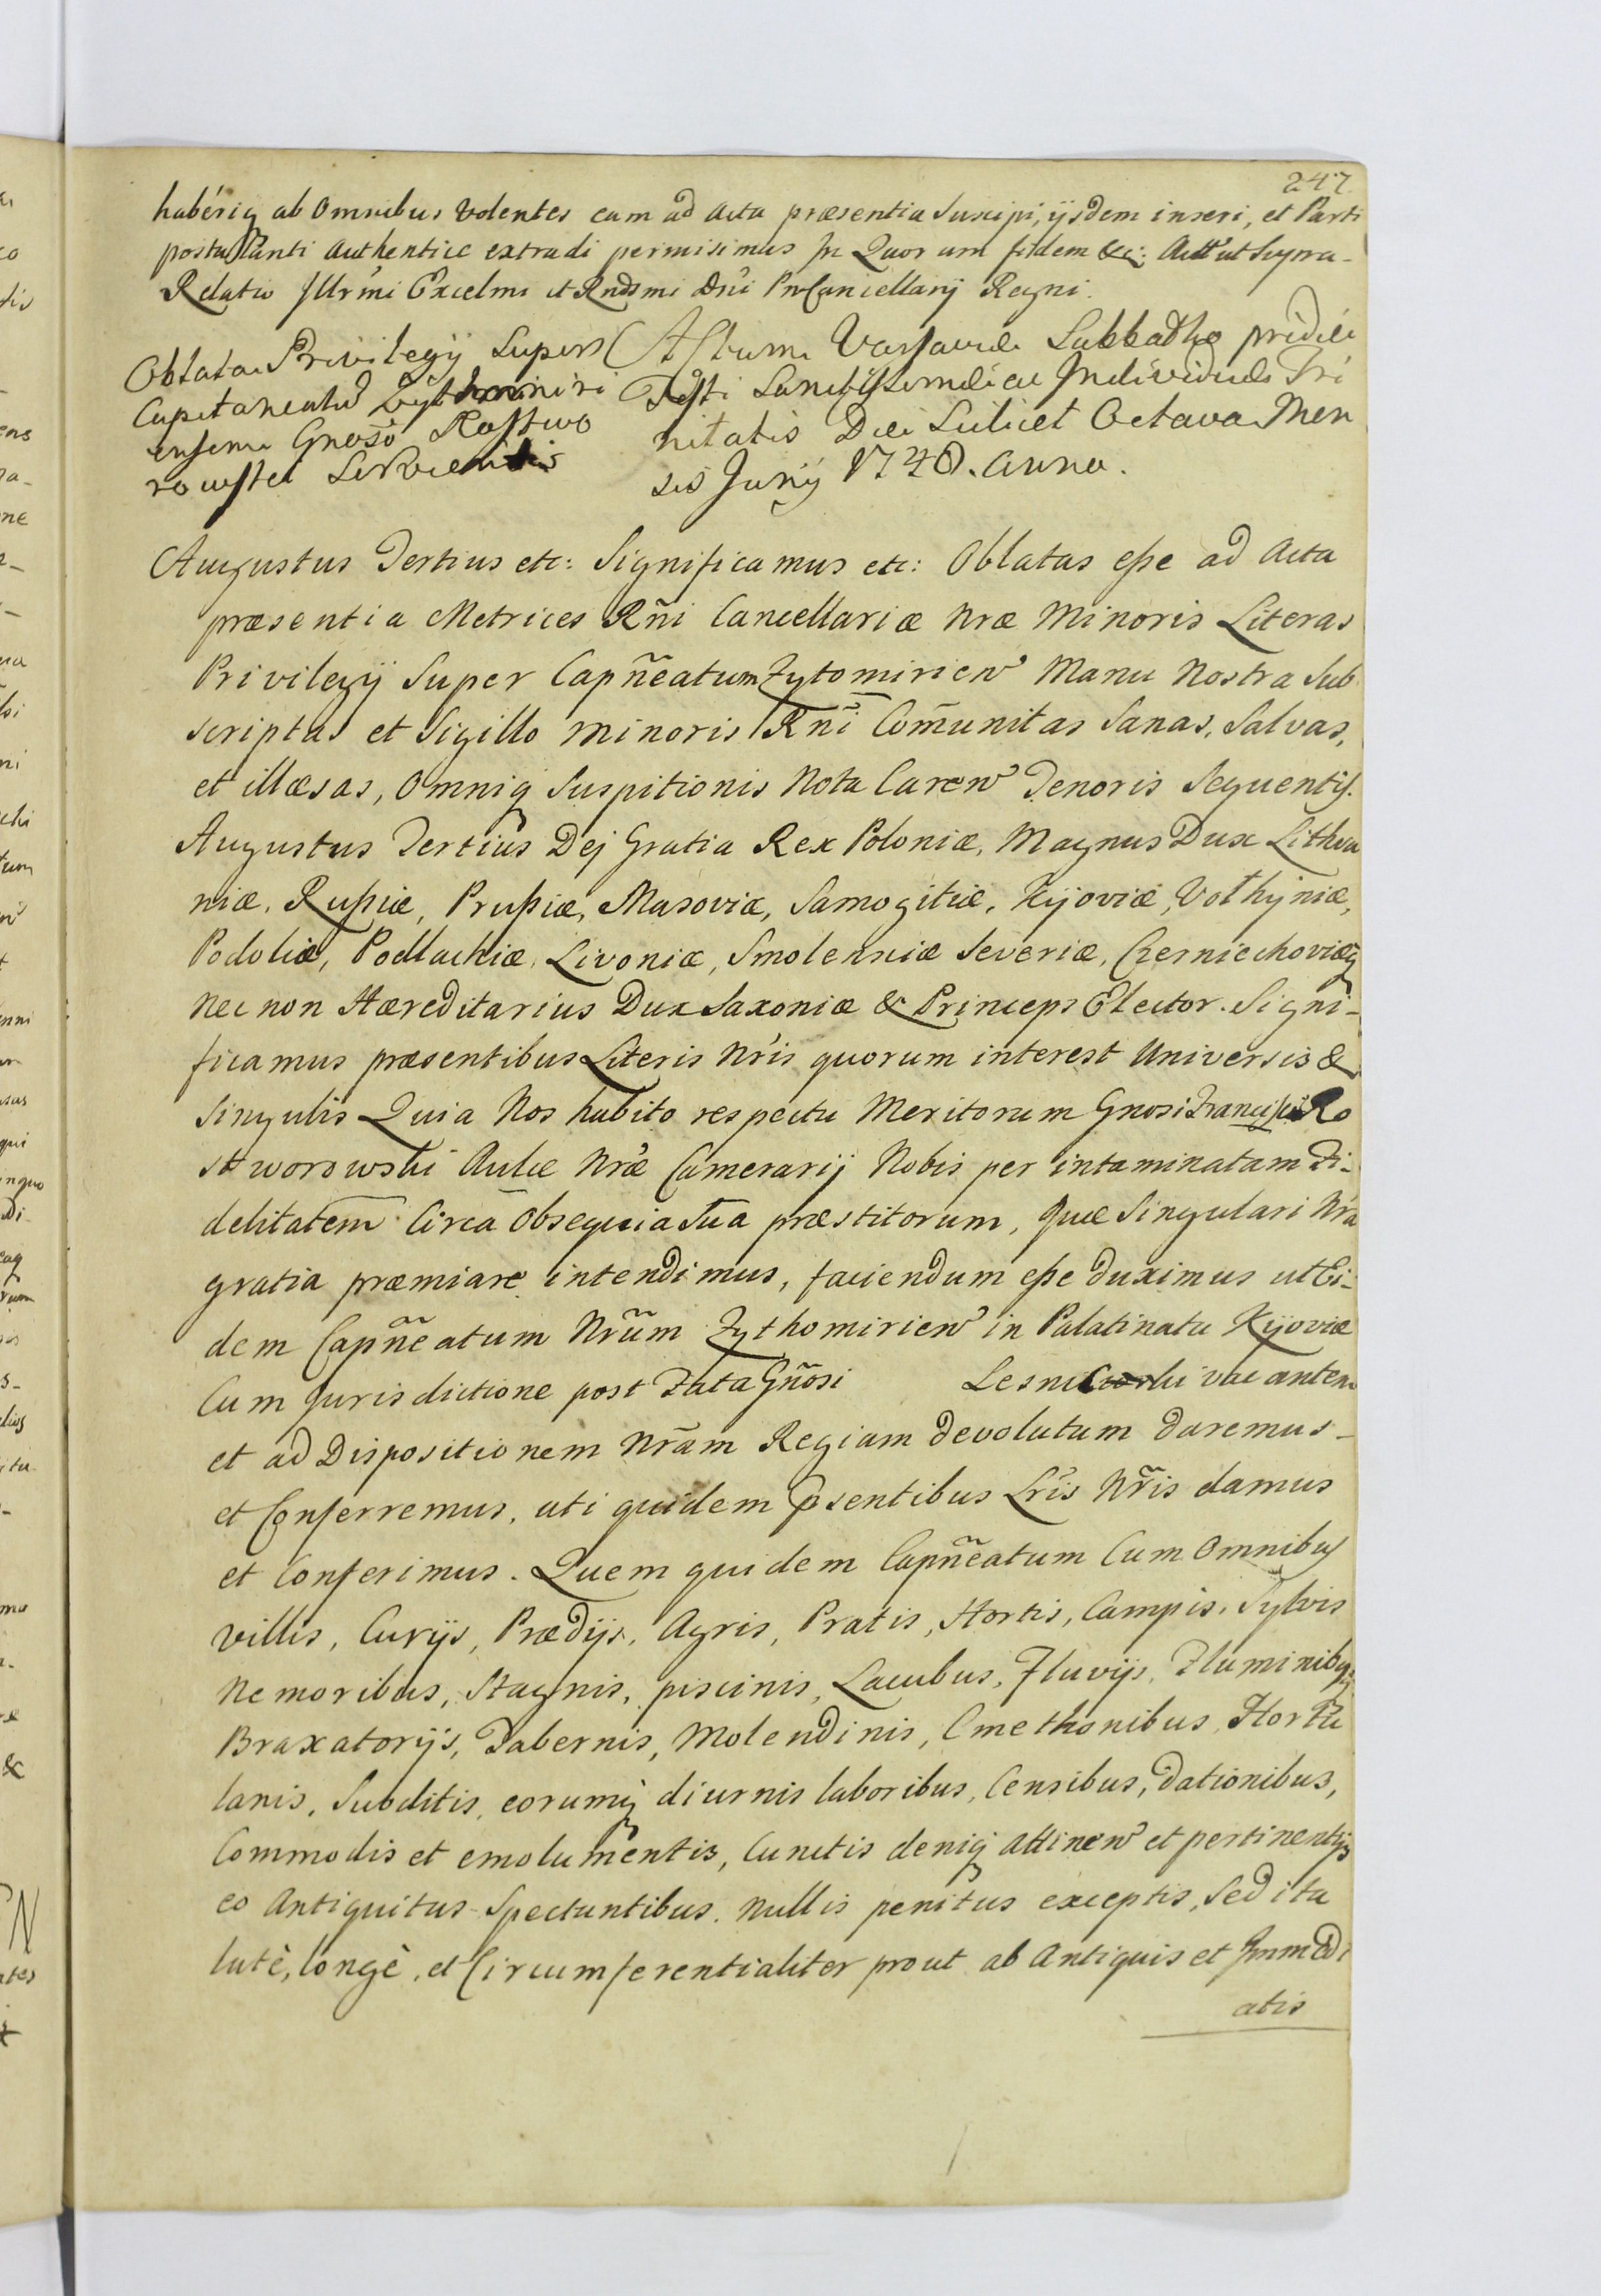 247.
habériq ab Omnibus Volentes eam ad Acta præsentia Suscipi, ijsdem inseri, et Parti
postulanti Authentice extradi permisimus In Quorum fidem &c: Actt ut Supra-
Relatio Illrmi Excelmi et Rndsmi Dni ProCancellarij Regni.
Oblata Privilegij Super
Capitaneatu Zytomiri
ensem Gnoso Rostwo
rowski Servientis
Actum Varsaviæ Sabbatho pridie
Festi Sanctissimæ ac Individuæ Tri
nitatis Die Scilicet Octava Men
sis Junij 1748. Anno.
Augustus Tertius etc: Significamus etc: Oblatas eße ad Acta
præsentia Metrices Rñi Cancellariæ Nræ Minoris Literas
Privilegij Super Capñeatum Zytomirien Manu Nostra Sub
scriptas et Sigillo minoris Rñi Com̃unitas Sanas, Salvas,
et illæsas, Omniq Suspitionis Nota Caren Tenoris Sequentis.
Augustus Tertius Dej Gratia Rex Poloniæ, Magnus Dux Lithva
niæ, Rußiæ, Prußiæ, Masoviæ, Samogitiæ, Kijoviæ, Volhyniæ,
Podoliæ, Podlachiæ, Livoniæ, Smolensciæ Severiæ, Czerniechoviæq
Nec non Hæreditarius Dux Saxoniæ & Princeps Elector. Signi-
ficamus præsentibus Literis Nris quorum interest Universis &
Singulis Quia Nos habito respectu Meritorum Gnosi Francisci Ro
stworowski Aulæ Nræ Camerarij Nobis per intaminatam Fi-
delitatem Circa Obsequia Sua præstitorum, Quæ Singulari Nra
gratia præmiare intendimus, faciendum eße duximus ut Ei-
dem Capñeatum Nrũm Zythomirien in Palatinatu Kijoviæ
Cum Jurisdictione post Fata Gñosi Lesnicorski vacantem
et ad Dispositionem Nrãm Regiam devolutum daremus-
et Conferremus, uti quidem Psentibus Lris Nr̃is damus
et Conferimus. Quem quidem Capñeatum Cum Omnibus
villis, Curijs, Prædijs, Agris, Pratis, Hortis, Campis, Sylvis
Nemoribus, Stagnis, piscinis, Lacubus, Fluvijs, Fluminibq;
Braxatorijs, Tabernis, Molendinis, Cmethonibus, Hortu
lanis, Subditis, eorumq; diurnis laboribus, Censibus, dationibus,
Commodis et emolumentis, Cunctis deniq; attinen et pertinentijs
eo Antiquitus Spectantibus. Nullis penitus exceptis, Sed ita
latè, longè, et Circumferentialiter prout ab Antiquis et Immedi
atis